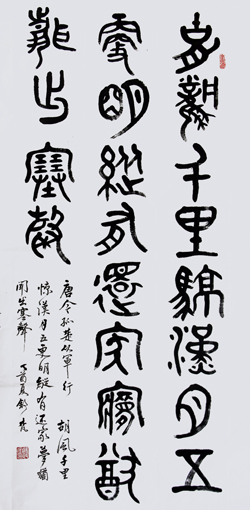 胡風千里驚漢月五
更明縱有還家夢猶
聞出塞聲
唐令狐楚从軍行 胡風千里
惊漢月五更明縱有还家夢猶
聞出塞聲 丁酉夏舒